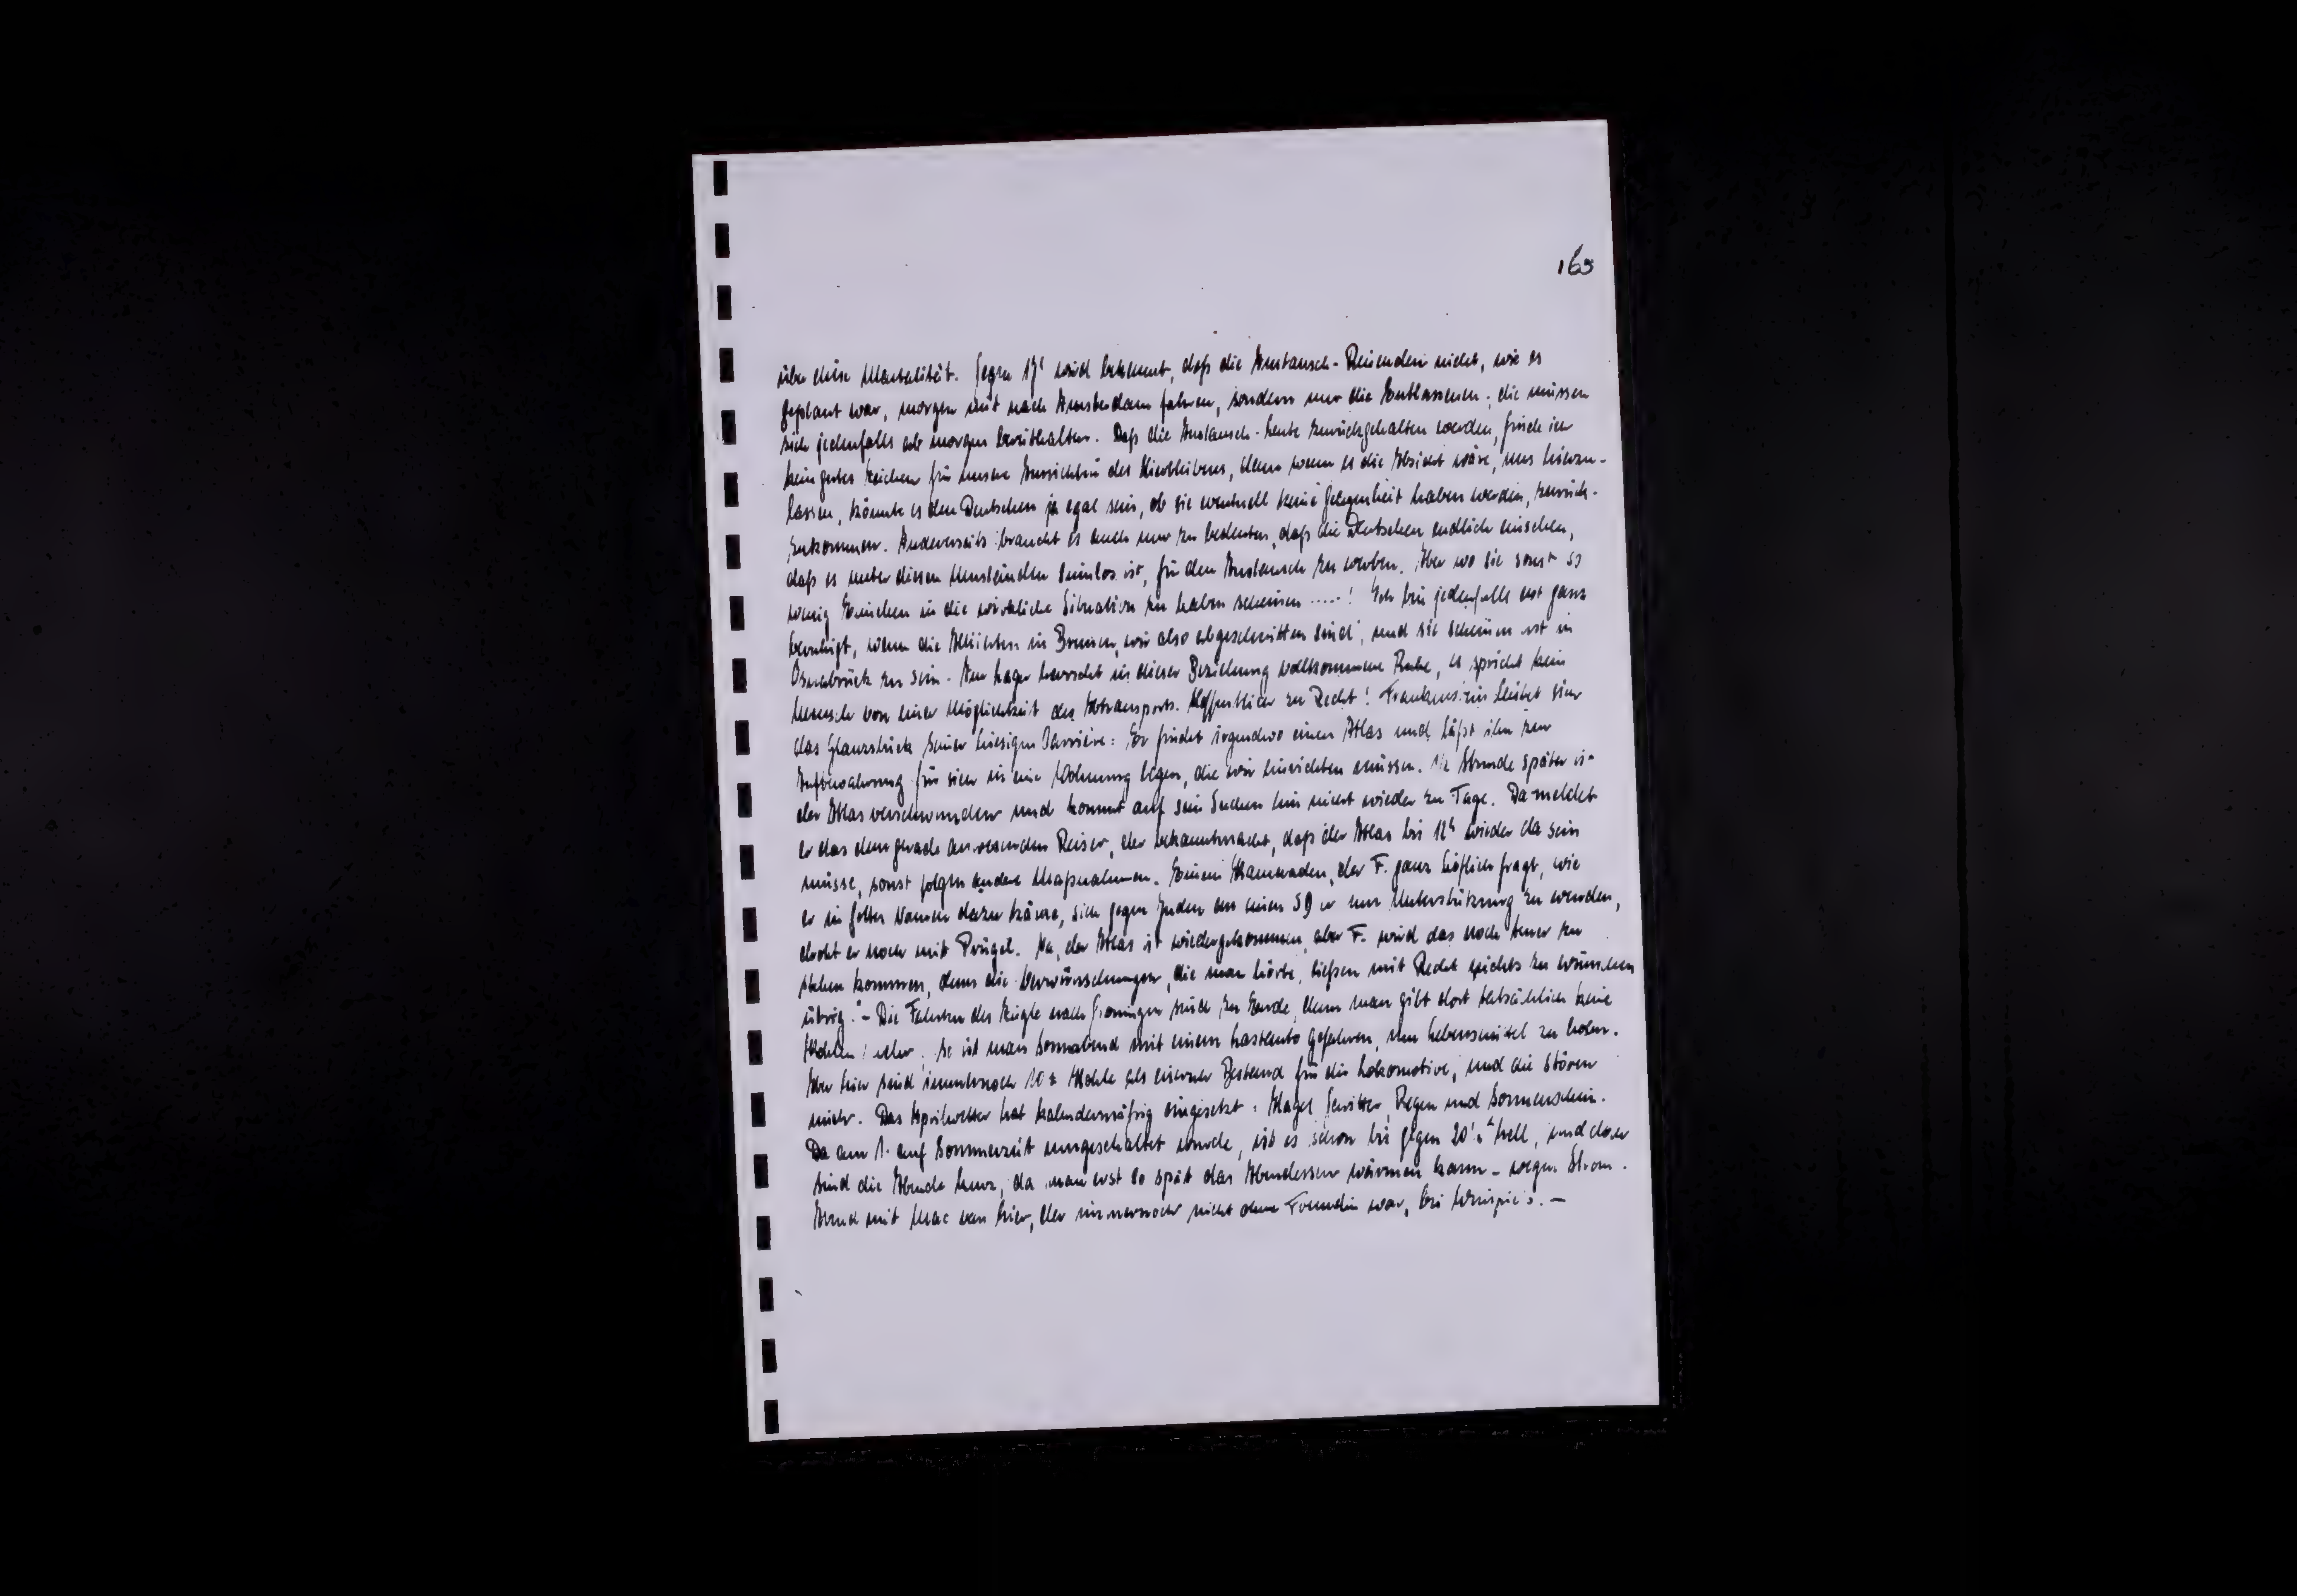 165
über diese Mentalität. Gegen 17h wird bekannt, daß die Austausch-Reisenden nicht, wie es
geplant war, morgen mit nach Amsterdam fahren, sondern nur die Entlassenen; die müssen
sich jedenfalls ab morgen bereithalten. Daß die Austausch-Leute zurückgehalten werden, finde ich
kein gutes Zeichen für unsere Aussichten des Hierbleibens, denn wenn es die Absicht wäre, uns hierzu-
lassen, könnte es den Deutschen ja egal sein, ob sie eventuell keine Gelegenheit haben werden, zurück-
zukommen. Andererseits braucht es auch nur zu bedeuten, daß die Deutschen endlich einsehen,
daß es unter diesen Umständen sinnlos ist, für den Austausch zu werben. Aber wo sie sonst so
wenig Einsehen in die wirkliche Situation zu haben scheinen .....! Ich bin jedenfalls erst ganz
beruhigt, wenn die Alliierten in Bremen, wir also abgeschnitten sind, und sie scheinen erst in
Osnabrück zu sein. Im Lager herrscht in dieser Beziehung vollkommene Ruhe, es spricht kein
Mensch von einer Möglichkeit des Abtransports. Hoffentlich zu Recht! Frankenstein leistet sich
das Glanzstück seiner hiesigen Carrière: Er findet irgendwo einen Atlas und läßt ihn zur
Aufbewahrung für sich in eine Wohnung legen, die wir einrichten müssen. 1/2 Stunde später is
der Atlas verschwunden und kommt auf sein Suchen hin nicht wieder zu Tage. Da meldet
er das dem gerade anwesenden Reiser, der bekanntmacht, daß der Atlas bis 12h wieder da sein
müsse, sonst folgen andere Maßnahmen. Einem Kameraden, der F. ganz höflich fragt, wie
er in Gottes Namen dazu käme, sich gegen Juden an einen SD er um Unterstützung zu wenden,
droht er noch mit Prügel. Na, der Atlas ist wiedergekommen, aber F. wird das noch teuer zu
stehen kommen, denn die Verwünschungen, die man hörte, ließen mit Recht nichts zu wünschen
übrig. - Die Fahrten des Zuges nach Groningen sind zu Ende, denn man gibt dort tatsächlich keine
Kohlen mehr. So ist man Sonnabend mit einem Lastauto gefahren, um Lebensmittel zu holen.
Aber hier sind immernoch 10 t Kohle als eiserner Bestand für die Lokomotive, und die stören
mich. Das Aprilwetter hat kalendermäßig eingesetzt: Hagel, Gewitter, Regen und Sonnenschein.
Da am 1. auf Sommerzeit umgeschaltet wurde, ist es schon bis gegen 20 1/2h hell, und doch
sind die Abende kurz, da man erst so spät das Abendessen wärmen kann - wegen Strom.
Abend mit Mac van hier, der immernoch nicht ohne Freundin war, bei